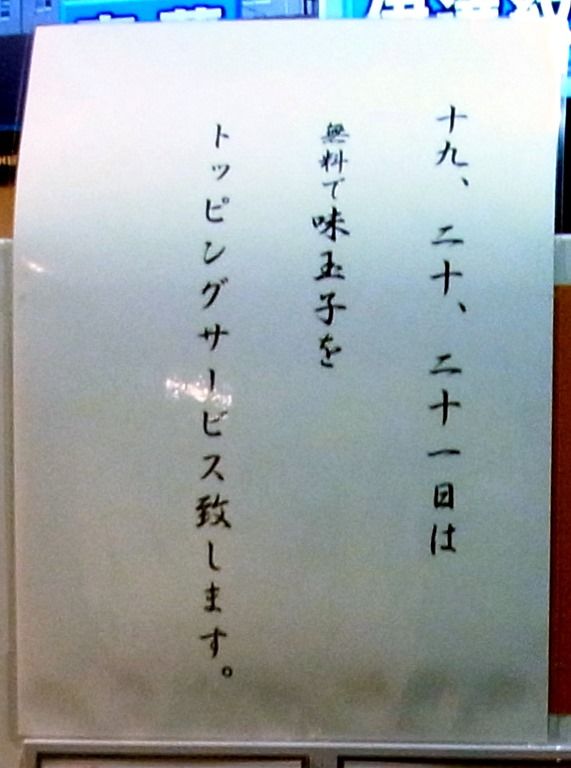 十九、二十、二十一日は
無料で味玉子を
トッピングサービス致します。